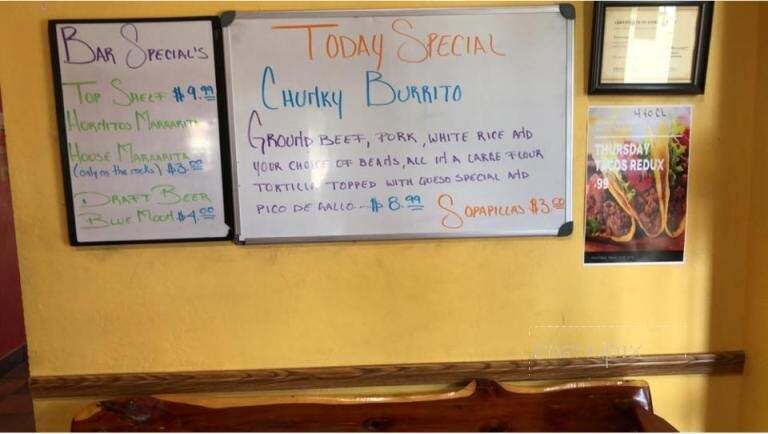 BAR SPECIAL'S
TOP SHELF $9.99
HORNITOS MARGARITA
HOUSE MARGARITA
(only on the rocks) $3.00
DRAFT BEER
BLUE MOON $4.00
TODAY SPECIAL
CHUNKY BURRITO
GROUND BEEF, PORK, WHITE RICE AND
YOUR CHOICE OF BEANS, ALL IN A LARGE FLOUR
TORTILLA TOPPED WITH QUESO SPECIAL AND
PICO DE GALLO - $8.99
SOPAPILLAS $3.50
4 TO CL
THURSDAY
TACOS REDUX
.99